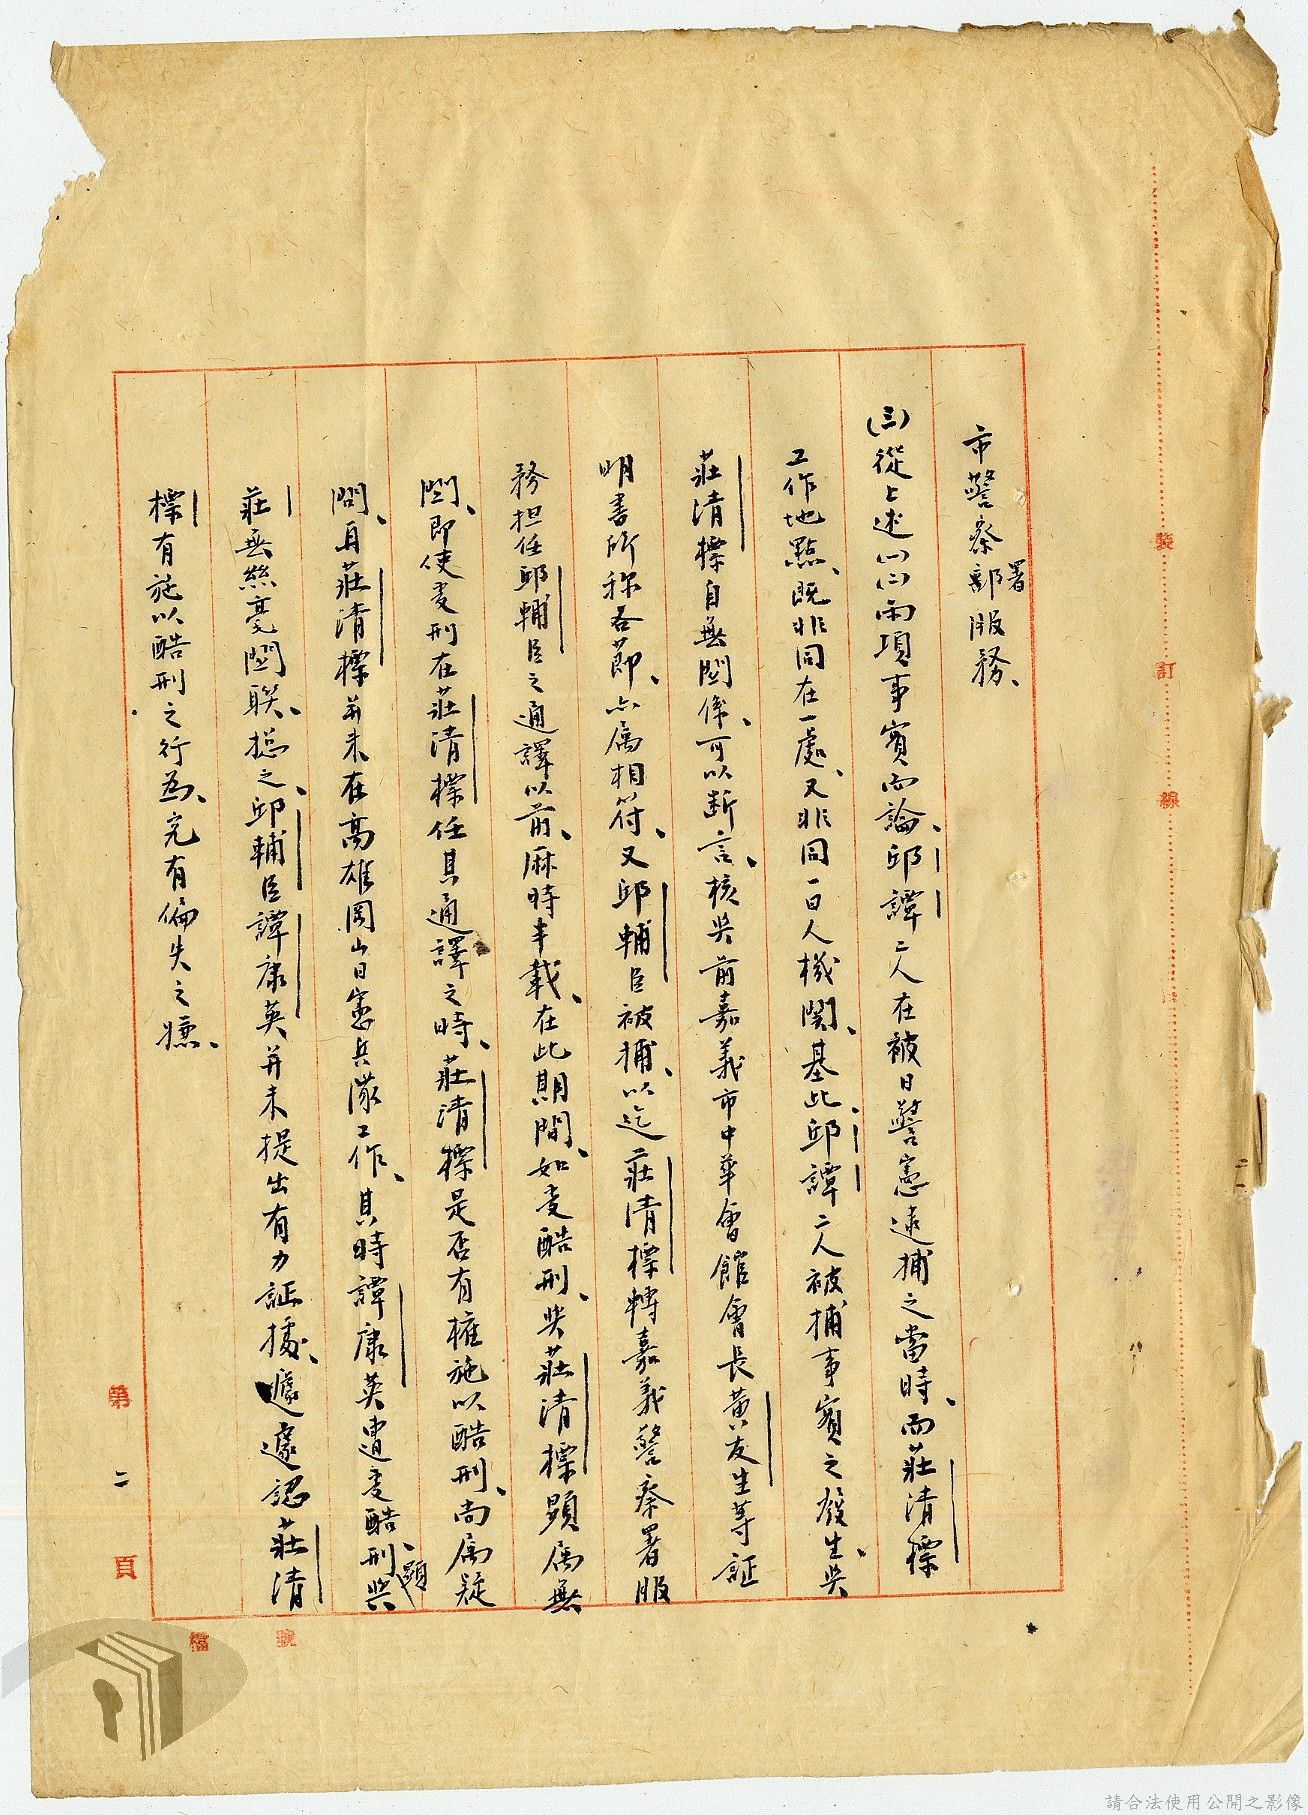 市警察署部服務、
(三)從上述(一)(二)兩項事實而論、邱譚二人在被日警憲逮捕之當時、而莊清標
工作地點、既非同在一處、又非同一日人機関、基此、邱譚二人被捕事實之發生、与
莊清標自無関係、可以断言、核与前嘉義市中華會館會長黄友生等証
明書所称各節、亦属相符、又邱輔臣被捕、以迄莊清標轉嘉義警察署服
務担任邱輔臣之通譯以前、麻時半載、在此期間、如受酷刑、与莊清標顕属無
関、即使受刑在莊清標任其通譯之時、莊清標是否有權施以酷刑、尚属疑
問、且莊清標并未在高雄岡山日憲兵隊工作、其時譚康英遭受酷刑、与顕
莊無絲毫関聯、總之、邱輔臣譚康英并未提出有力証據、遽認莊清
標有施以酷刑之行為、究有偏失之嫌、
裝
訂
線
第二頁
請合法使用公開之影像